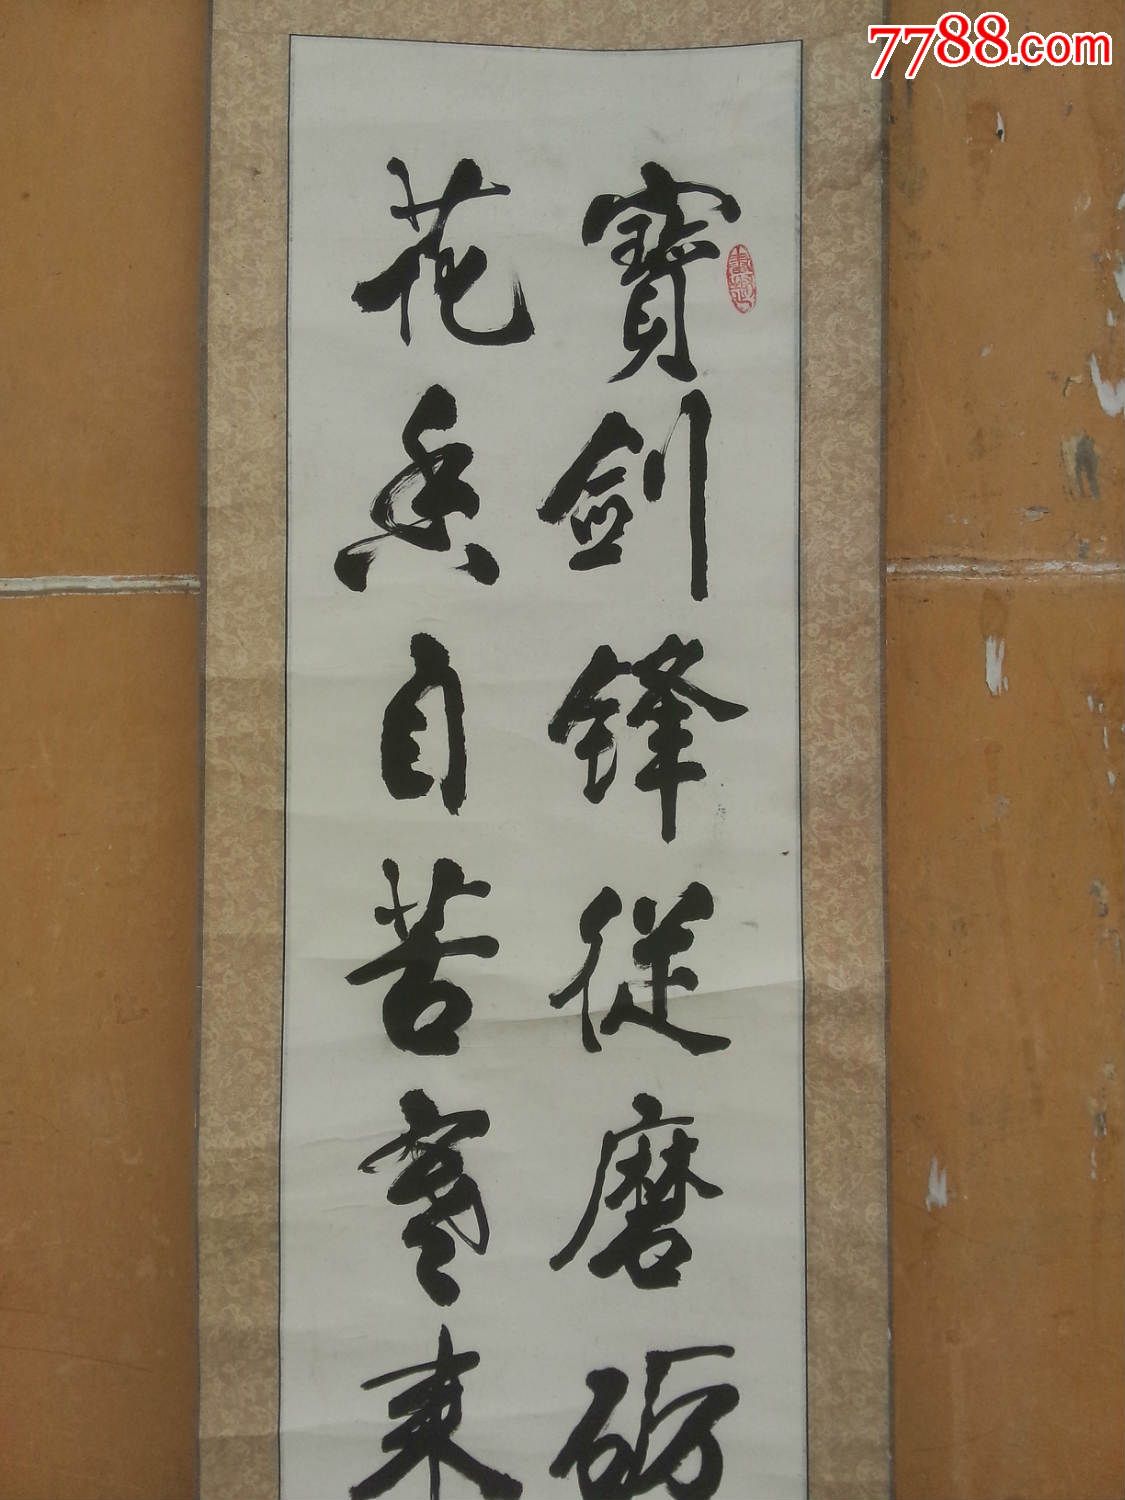 寶劍鋒從磨砺
花香自苦寒来
7788.com